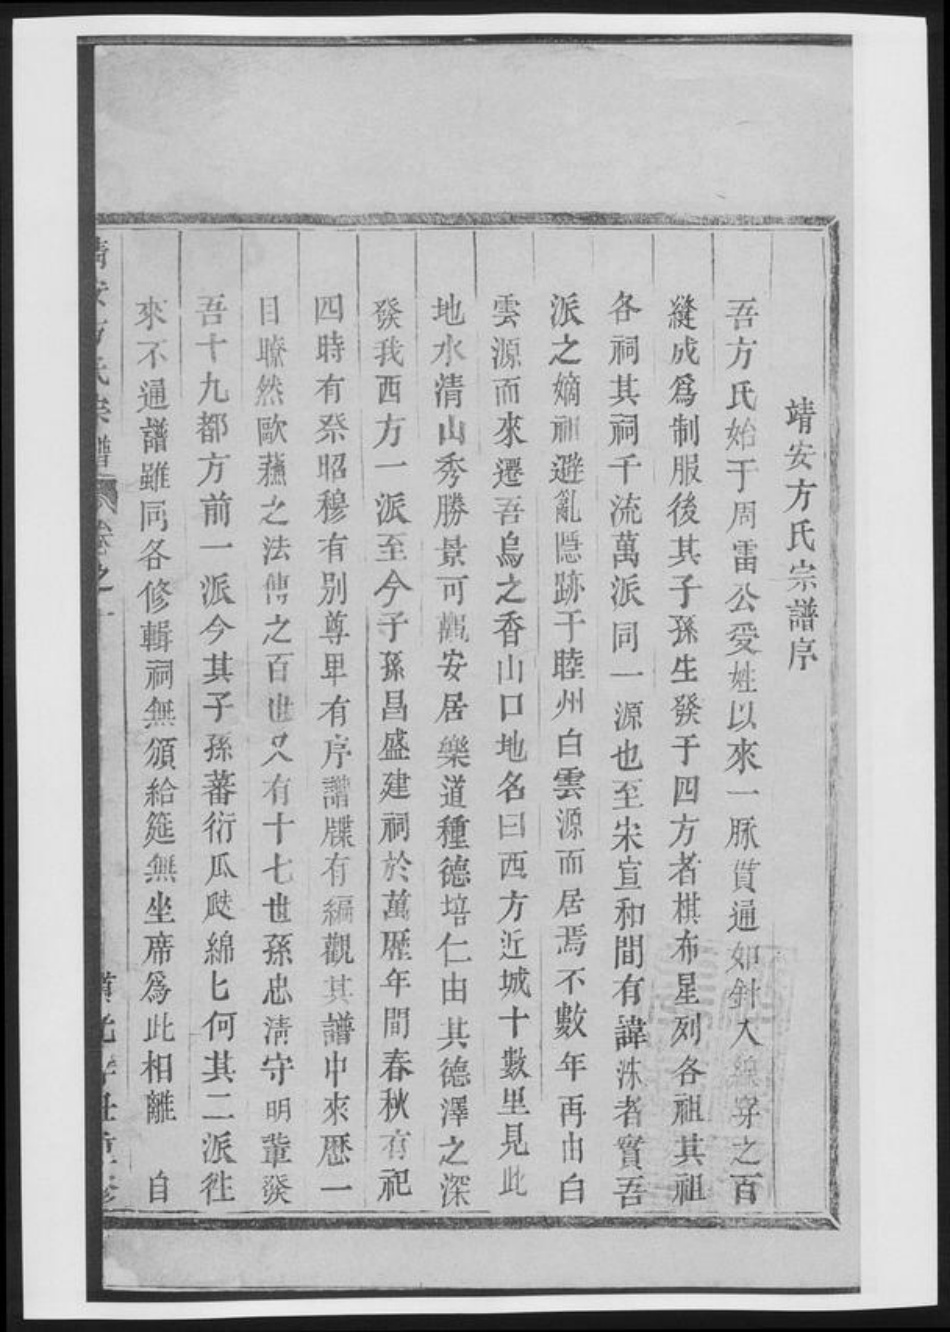 靖安方氏宗譜序
吾方氏始于周雷公受姓以來一脉貫通如針入線穿之百
縫成爲制服後其子孫生發于四方者棋布星列各祖其祖
各祠其祠千流萬派同一源也至宋宣和間有諱洙者實吾
派之嫡祖避亂隱跡于睦州白雲源而居焉不數年再由白
雲源而來遷吾烏之香山口地名曰西方近城十數里見此
地水清山秀勝景可觀安居樂道種德培仁由其德澤之深
發我西方一派至今子孫昌盛建祠於萬歷年間春秋有祀
四時有祭昭穆有別尊卑有序譜牒有編觀其譜中來歷一
目瞭然歐蘓之法傳之百世又有十七世孫忠淸守明輩發
吾十九都方前一派今其子孫蕃衍瓜瓞綿匕何其二派徃
來不通譜雖同各修輯祠無頒給筵無坐席爲此相離 自
靖安方氏宗譜 卷之一